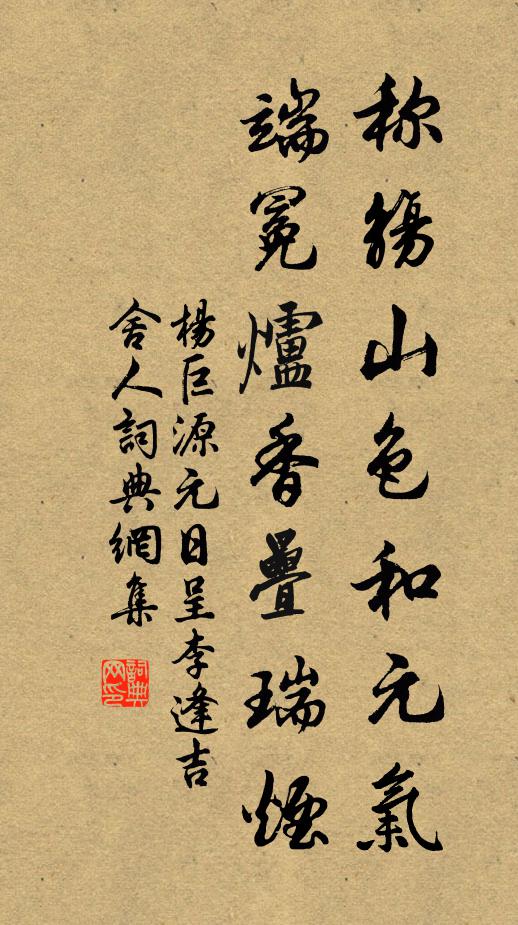 称觴山色和元氣
端冕爐香疊瑞煙
楊巨源元日呈李逢吉
舍人詞典網集
詞典网印